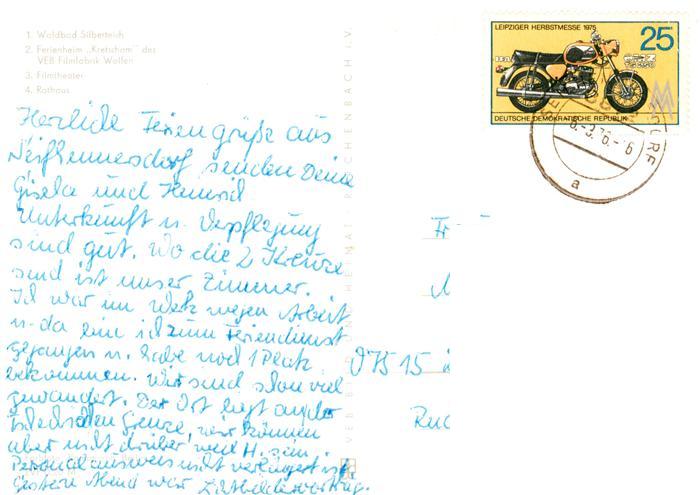 1. Waldbad Silberteich
2. Ferienheim „Kretscham" des
VEB Filmfabrik Wolfen
3. Filmtheater
4. Rathaus
LEIPZIGER HERBSTMESSE 1975
25
MZ
TS 250
DEUTSCHE DEMOKRATISCHE REPUBLIK
Herzliche Feriengrüße aus
Seifhennersdorf senden Deine
Gisela und Heinrich
Unterkunft u. Verpflegung
sind gut. Wo die 2 Kreuze
sind ist unser Zimmer.
Ich war im Werk wegen Arbeit
u. da bin ich zum Feriendienst
gegangen u. habe noch 1 Platz
bekommen. Wir sind schon viel
gewandert. Der Ort liegt an der
tschechischen Grenze, wir können
aber nicht drüber weil H. sein
Personalausweis nicht verlängert ist.
Gestern Abend war Lichtbildervortrag.
a